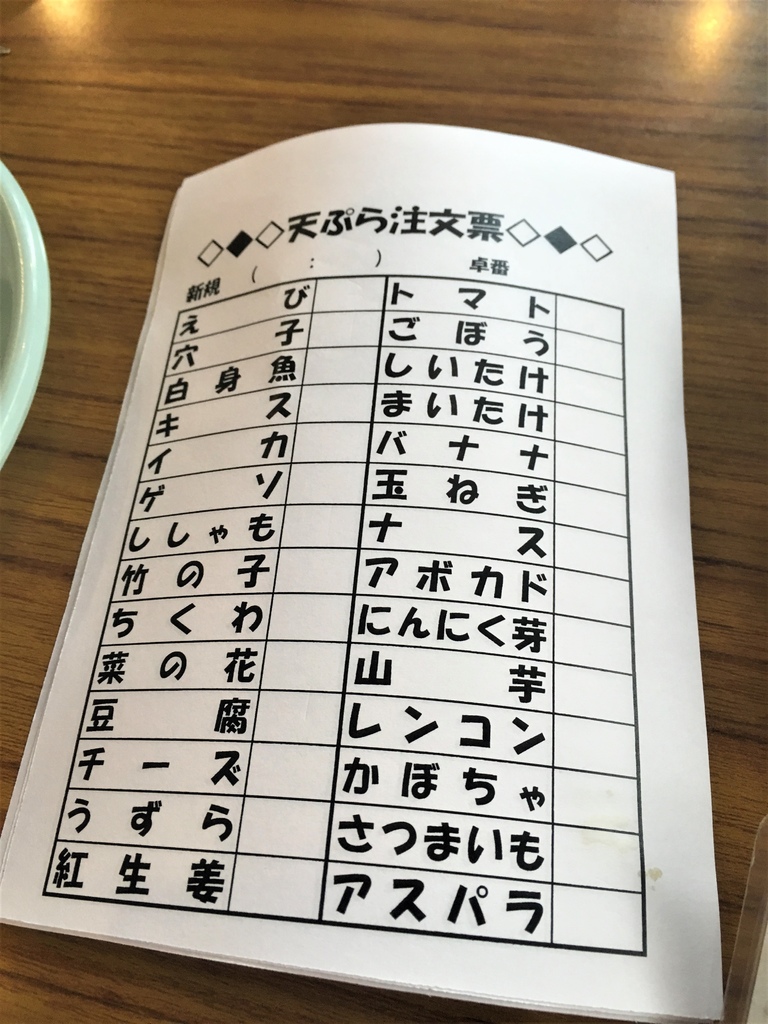 ◇◆◇天ぷら注文票◇◆◇
新規 ( : ) 卓番
えび
穴子
白身魚
キス
イカ
ゲソ
ししゃも
竹の子
ちくわ
菜の花
豆腐
チーズ
うずら
紅生姜
トマト
ごぼう
しいたけ
まいたけ
バナナ
玉ねぎ
ナス
アボカド
にんにく芽
山芋
レンコン
かぼちゃ
さつまいも
アスパラ